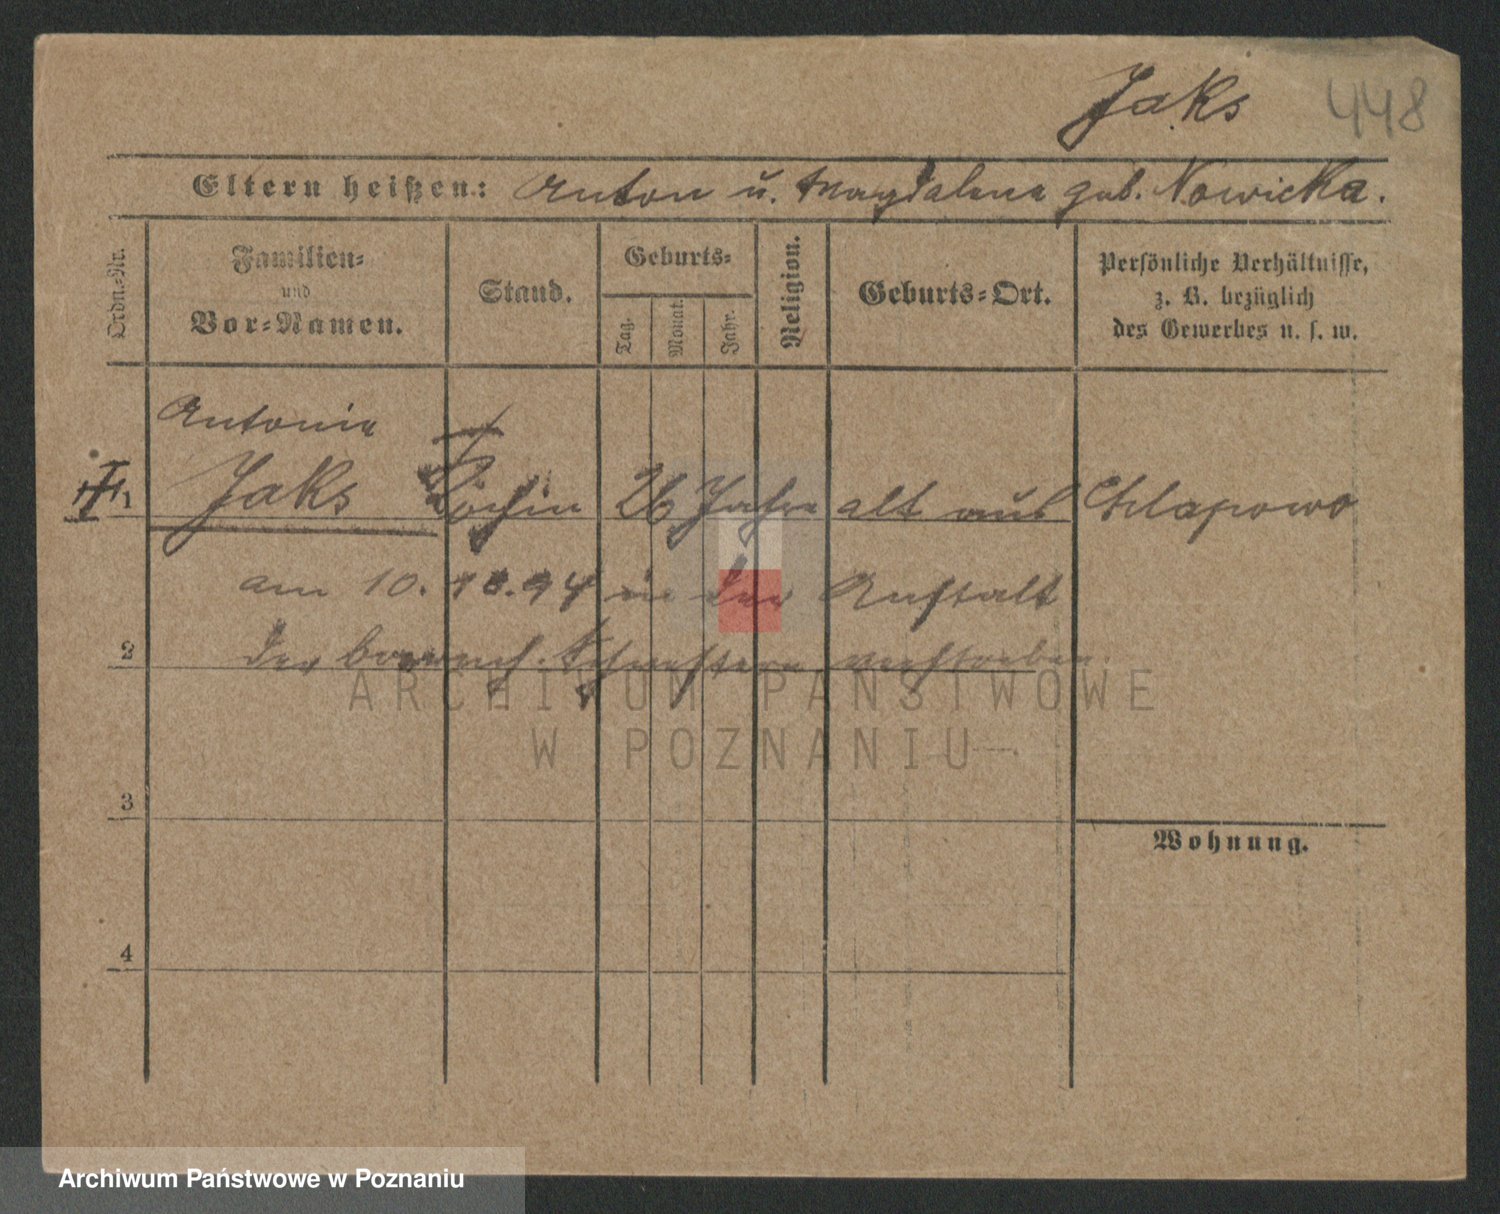 Jaks 448
Eltern heißen: Anton u. Magdalena geb. Nowicka.
Ordn.-Nr.
Familien-
und
Vor-Namen.
Stand.
Geburts-
Tag.
Monat.
Jahr.
Religion.
Geburts-Ort.
Persönliche Verhältnisse,
z. B. bezüglich
des Gewerbes u. s. w.
Antonie
1 Jaks Köchin 26 Jahre alt aus Chlapowo
am 10. 10. 94 in der Anstalt
2 der barmh. Schwestern verstorben.
ARCHIWUM PAŃSTWOWE
W POZNANIU
3
Wohnung.
4
Archiwum Państwowe w Poznaniu